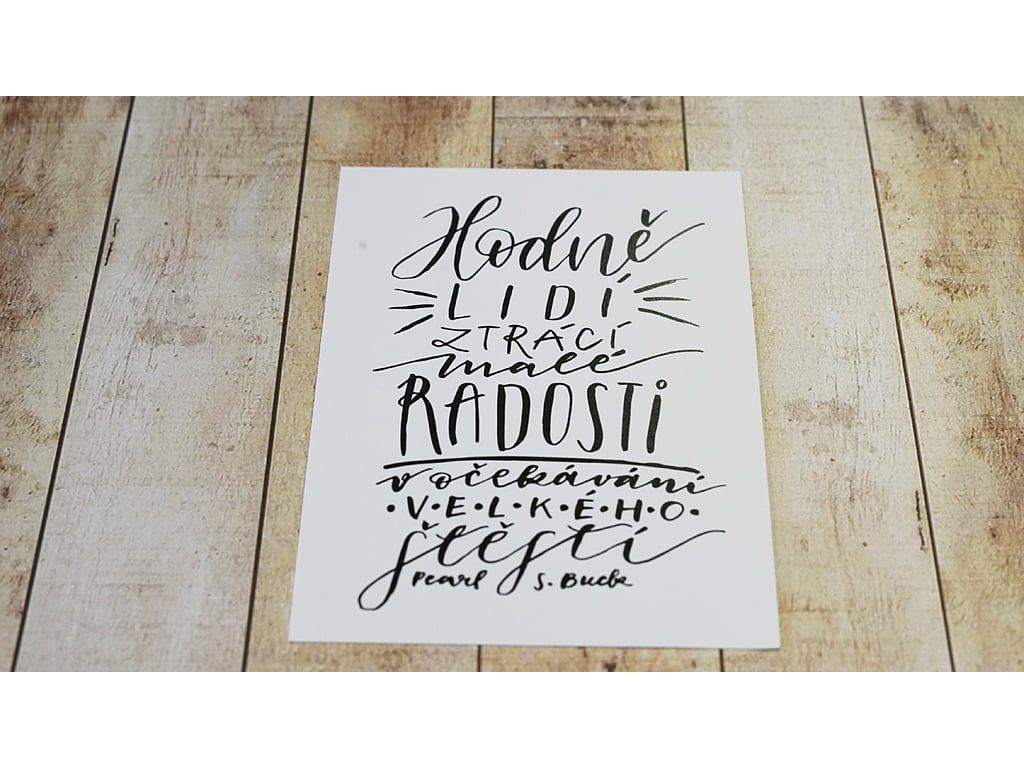 Hodně
LIDÍ
ZTRÁCÍ
malé
RADOSTi
v očekávání
·V·E·L·K·É·H·O·
štěstí
Pearl S. Buck